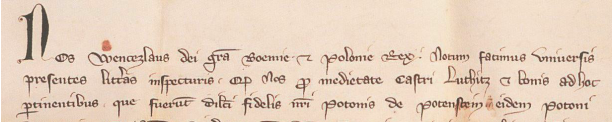 Nos Wenczlaus dei gra Boemie ⁊ Polonie Rex. Notum facimus vniuersis
presentes litteras inspecturis. Qp Nos p medietate Castri Luthitz ⁊ bonis ad hoc
ptinentibus. que fuerut dilti fidelis nri Potonis de Potenstein eidem Potoni